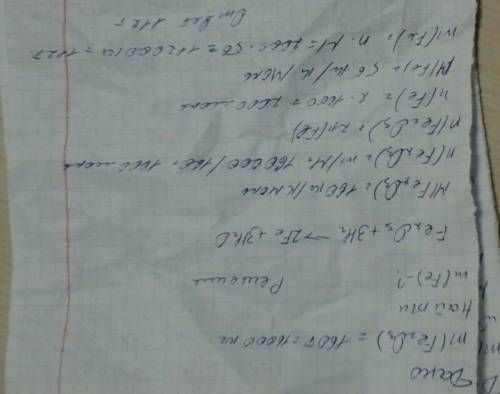 Дано
m(Fe₂O₃) = 160т = 16000 кг
Найти
m(Fe) - ?
Решение
Fe₂O₃ + 3H₂ → 2Fe + 3H₂O
M(Fe₂O₃) = 160 кг/кмоль
n(Fe₂O₃) = m/M = 160000/160 = 1000 моль
n(Fe₂O₃) = 2n(Fe)
n(Fe) = 2 · 1000 = 2000 моль
M(Fe) = 56 кг/кмоль
m(Fe) = n · M = 2000 · 56 = 112000 кг = 112т
Ответ 112т